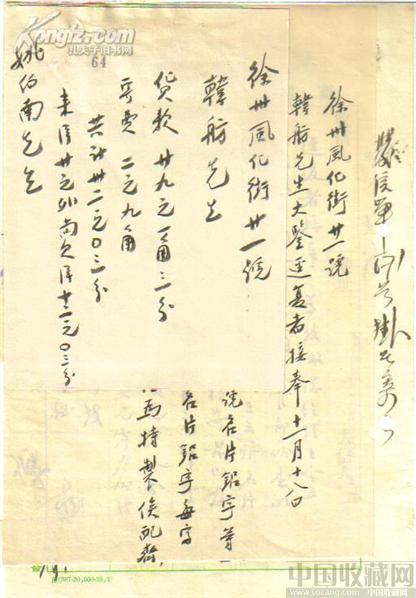 徐州風化街廿一號
韓舫先生大鑒逕复者接奉十一月十八日
說名片鉛字等一
名片鉛字每字
馬特製俟配齊
64
徐州風化街廿一號
韓舫先生
貨款 廿九元一角三分
寄費 二元九角
共計卅二元〇三分
來洋廿元外尚欠洋十二元〇三分
姚伯南先生
Kongfz.com
孔夫子旧书网
中国收藏网
www.socang.com